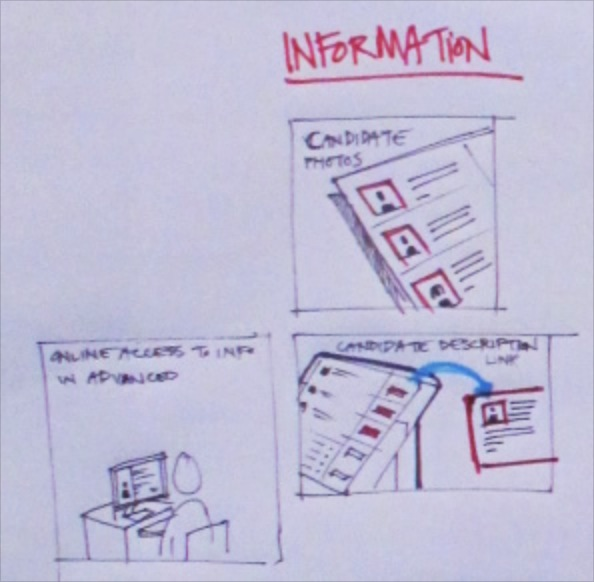 INFORMATION
CANDIDATE
PHOTOS
ONLINE ACCESS TO INFO
IN ADVANCED
CANDIDATE DESCRIPTION
LINK